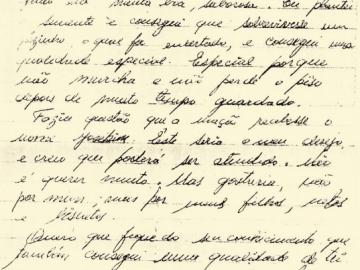 muita era, saborosa. Eu plantei
semente e consegui que sobrevivesse um
pèzinho, o qual foi enxertado, e consegui uma
qualidade especial. Especial porque
não murcha e não perde o pêso
depois de muito tempo guardado.
Fazia questão que a nação recebesse o
nome Este seria o meu desejo,
e creio que poderá ser atendido. Não
é querer muito. Mas gostaria, não
por mim; mas por meus filhos, netos
e bisnetos.
Quero que fique do seu conhecimento que
também consegui uma qualidade de